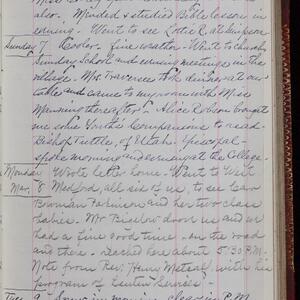 also. Minded & studied Bible lesson in
evening. Went to see Lottie R. at Simpson
Sunday 7 Cooler. fine weather. Went to church
Sunday School and evening meetings in the
village. Mrs. Traverces took dinner at our
table and came to my room with Miss
Manning thereafter. Alice Robson bought
me some Youth's Companions to read.
Bishop Tuttle, of Utah. Episcopal
spoke morning and evening at the College
Monday Wrote letter home. Went to West
Mar. 8 Medford, all six of us, to see Cara
Bowman Farmer and her two class
babies. Mr Bigelow drove us and we
had a fine good time on the road
and there. Reached here about 5:30 P.M.
Note from Rev. Henry Metcalf with his
program of Lenten Services.
Tues. 9